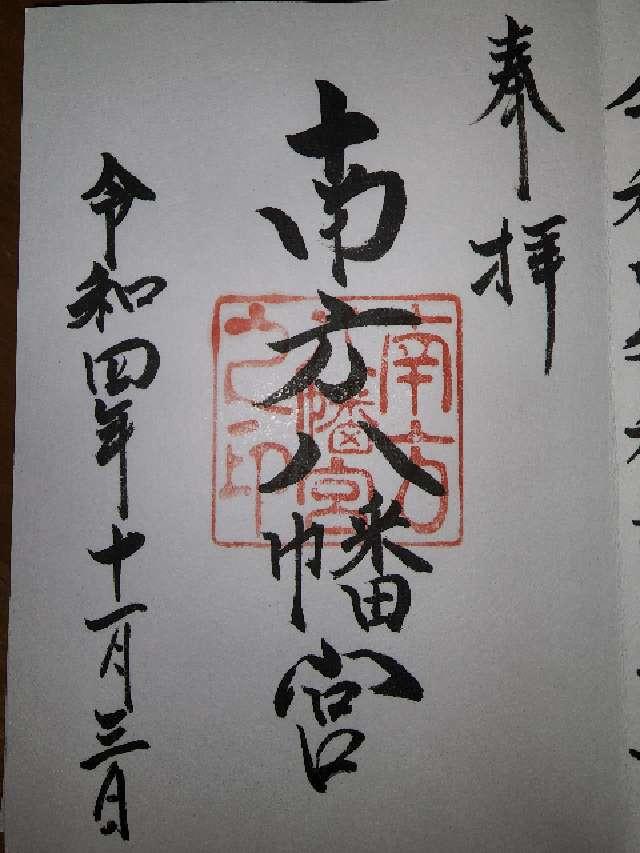 奉拝
南方八幡宮
南方八幡宮之印
令和四年十一月三日